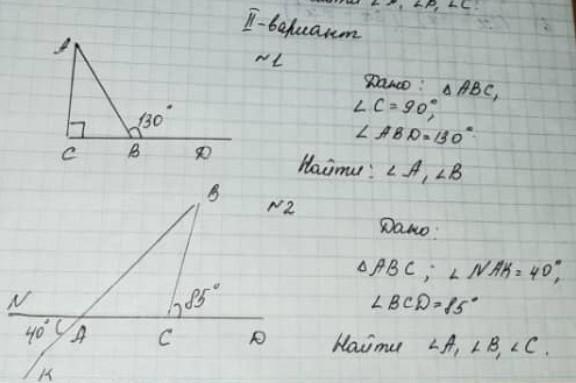 ∠A, ∠B, ∠C.
II-вариант
№1
A
130°
C B D
Дано: △ABC,
∠C=90°,
∠ABD=130°
Найти: ∠A, ∠B
№2
B
85°
N
40° A C D
K
Дано:
△ABC; ∠NAK=40°,
∠BCD=85°
Найти ∠A, ∠B, ∠C.